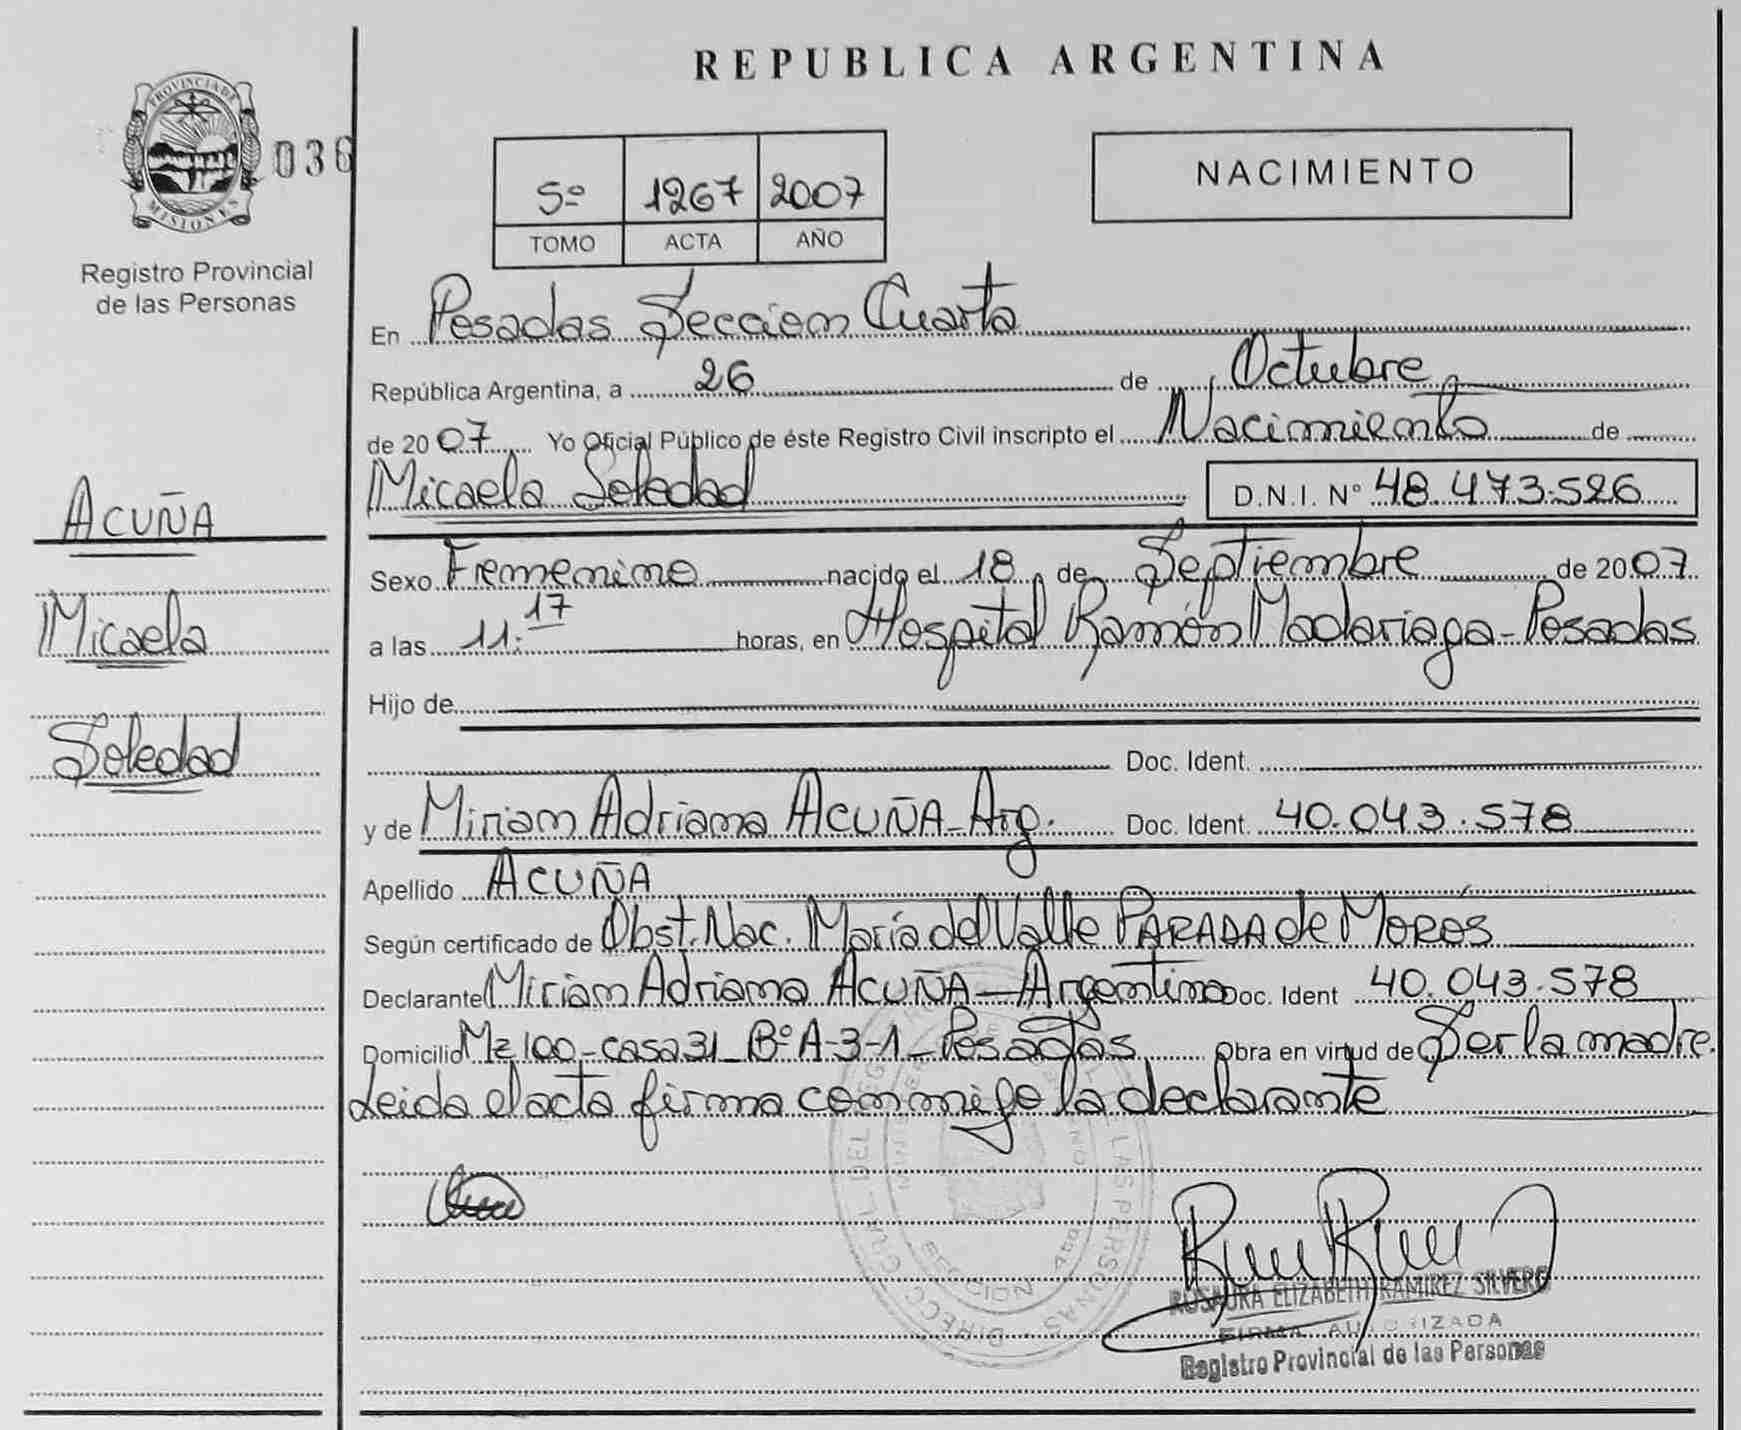 REPUBLICA ARGENTINA
PROVINCIA DE
MISIONES
036
Registro Provincial
de las Personas
5º 1267 2007
TOMO ACTA AÑO
NACIMIENTO
En Posadas Seccion Cuarta
República Argentina, a 26 de Octubre
de 2007 Yo Oficial Público de éste Registro Civil inscripto el Nacimiento de
Micaela Soledad D.N.I. Nº 48.473.526
ACUÑA
Micaela
Soledad
Sexo Femenino nacido el 18 de Septiembre de 2007
a las 11:17 horas, en Hospital Ramón Madariaga - Posadas
Hijo de
Doc. Ident.
y de Miriam Adriana ACUÑA - Arg. Doc. Ident. 40.043.578
Apellido ACUÑA
Según certificado de Obst. Nac. María del Valle PARADA de MOROS
Declarante Miriam Adriana ACUÑA - Argentina Doc. Ident 40.043.578
Domicilio Mz 100 - casa 31 - Bº A-3-1 - Posadas Obra en virtud de Ser la madre.
Leida el acta firma conmigo la declarante
ROSAURA ELIZABETH RAMIREZ SILVERO
FIRMA AUTORIZADA
Registro Provincial de las Personas